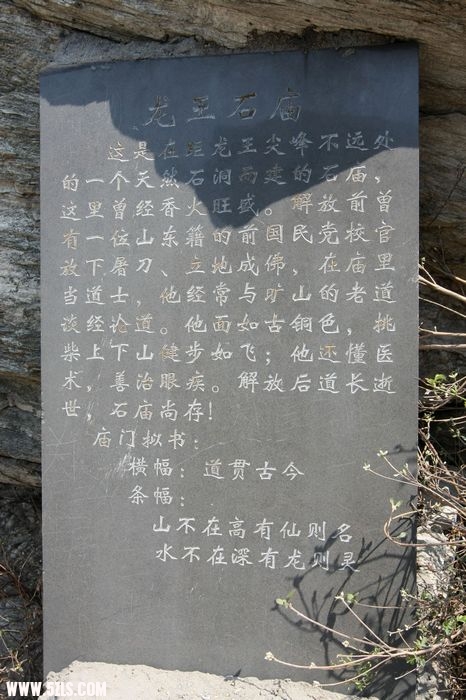 龙王石庙
这是在距龙王尖峰不远处
的一个天然石洞而建的石庙，
这里曾经香火旺盛。解放前曾
有一位山东籍的前国民党校官
放下屠刀、立地成佛，在庙里
当道士，他经常与旷山的老道
谈经论道。他面如古铜色，挑
柴上下山健步如飞；他还懂医
术，善治眼疾。解放后道长逝
世，石庙尚存！
庙门拟书：
横幅：道贯古今
条幅：
山不在高有仙则名
水不在深有龙则灵
WWW.52LS.COM